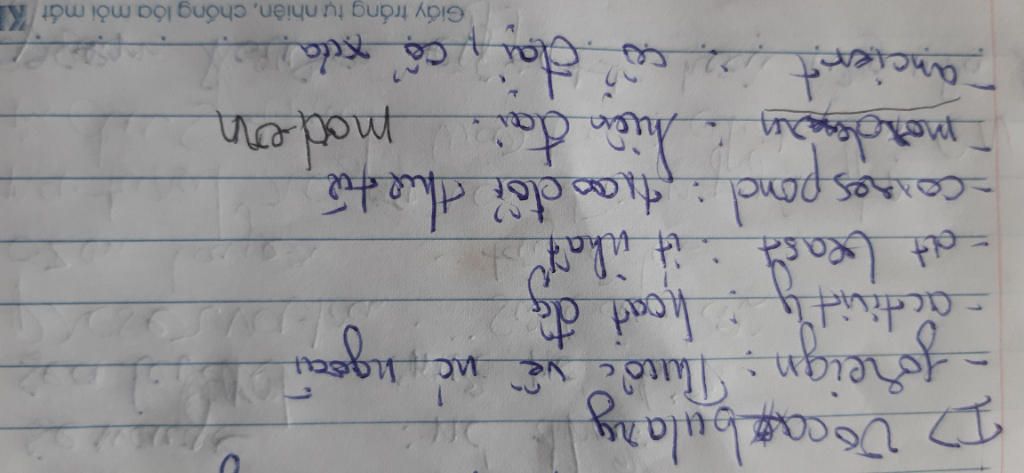 I) Vocabulary
- foreign : Thuộc về nc ngoài
- activity : hoạt đg
- at least : ít nhất
- correspond : trao đổi thư từ
- modern : hiện đại. modern
- ancient : cổ đại, cổ xưa
Giấy trắng tự nhiên, chống lóa mỏi mắt